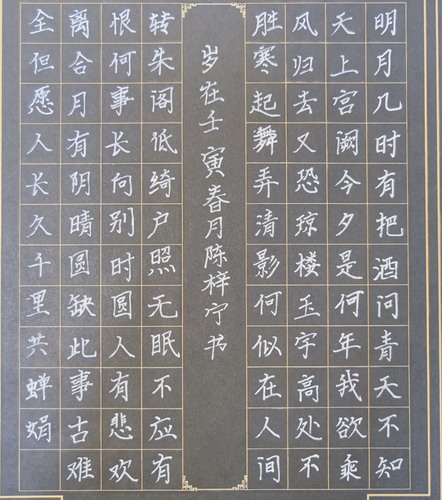 明月几时有把酒问青天不知
天上宫阙今夕是何年我欲乘
风归去又恐琼楼玉宇高处不
胜寒起舞弄清影何似在人间
岁在壬寅春月陈梓宁书
转朱阁低绮户照无眠不应有
恨何事长向别时圆人有悲欢
离合月有阴晴圆缺此事古难
全但愿人长久千里共蝉娟